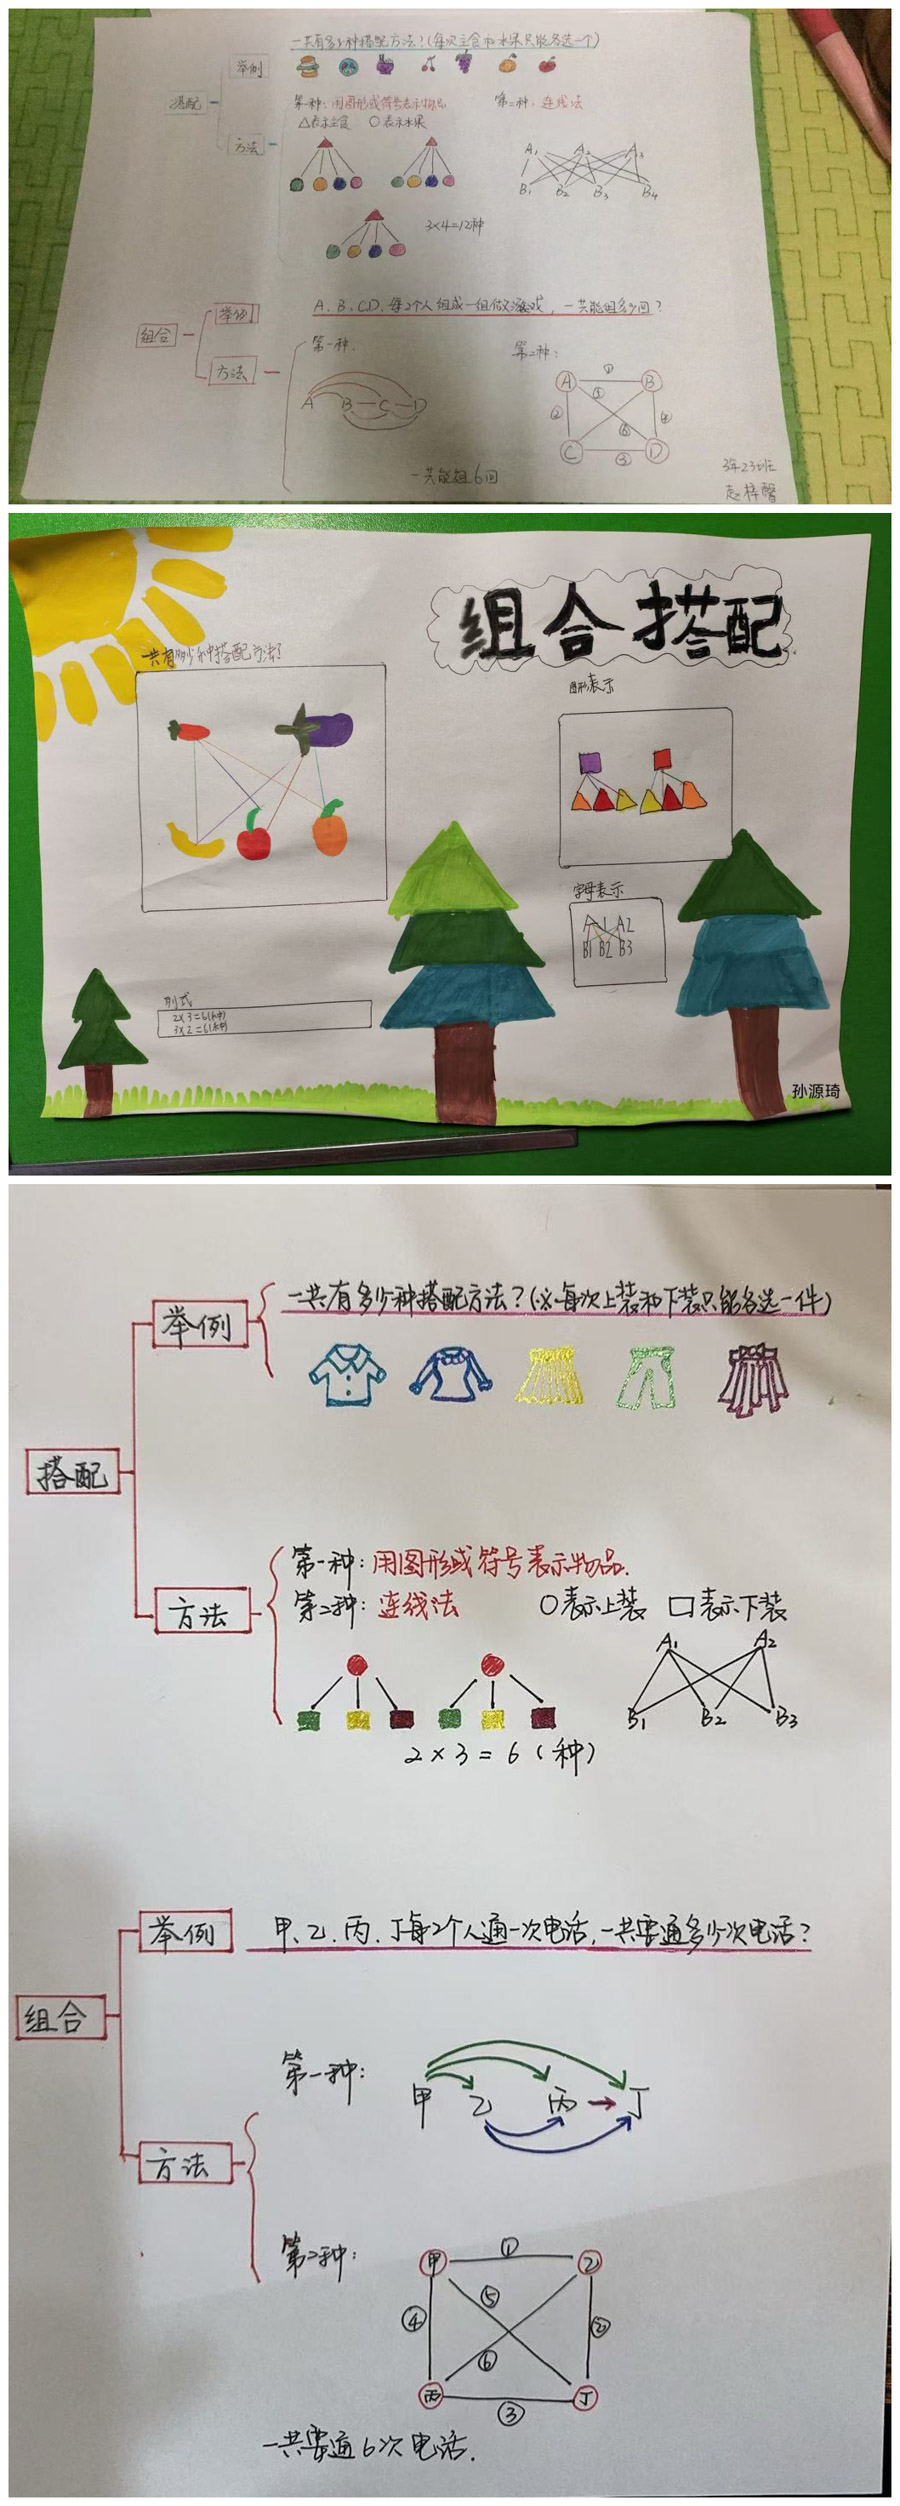 一共有多少种搭配方法？（每次主食和水果只能各选一个）
举例
搭配
第一种：用图形或符号表示物品
第二种：连线法
△表示主食 ○表示水果
方法
A₁ A₂ A₃
B₁ B₂ B₃ B₄
3×4=12种
A、B、C、D、每2个人组成一组做游戏，一共能组多少回？
举例
组合
方法
第一种：
第二种：
A B C D
A ① B
② ⑤ ④
⑥
C ③ D
一共能组6回
3年23班
赵梓馨
组合搭配
一共有多少种搭配方法？
图形表示
字母表示
A1 A2
B1 B2 B3
列式
2×3=6(种)
3×2=6(种)
孙源琦
一共有多少种搭配方法？（※每次上装和下装只能各选一件）
举例
搭配
第一种：用图形或符号表示物品.
方法
第二种：连线法 ○表示上装 □表示下装
A₁ A₂
B₁ B₂ B₃
2×3=6（种）
举例
甲、乙、丙、丁每2个人通一次电话，一共要通多少次电话？
组合
第一种：
甲 乙 丙 丁
方法
第二种：
甲 ① 乙
④ ⑤ ②
⑥
丙 ③ 丁
一共要通6次电话.